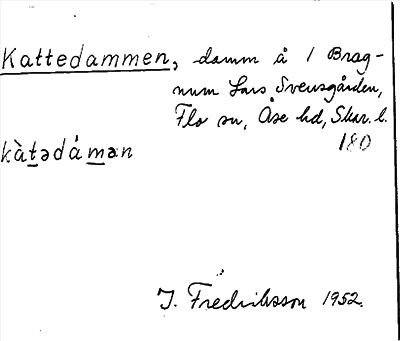 Kattedammen, damm å 1 Brag-
num Lars Svensgården,
Flo sn, Åse hd, Skar. l.
180
kàt̲ədám̲ən
I. Fredriksson 1952.